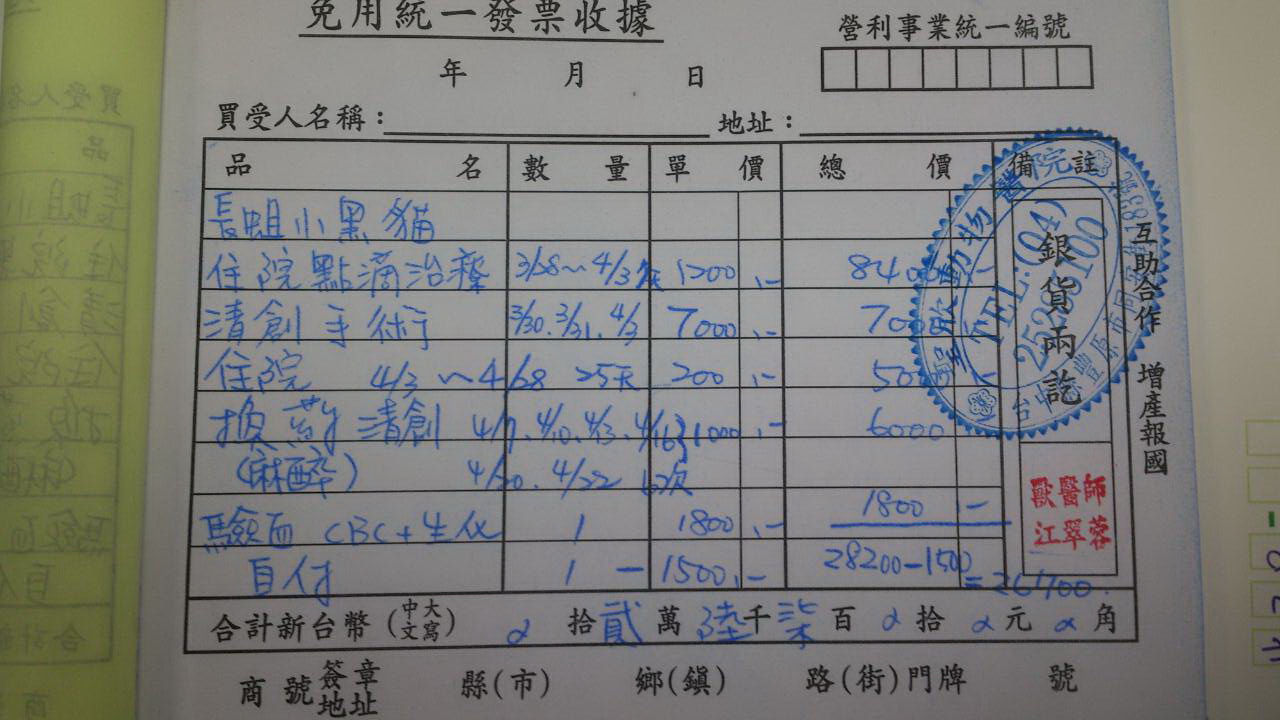 免用統一發票收據
營利事業統一編號
年 月 日
買受人名稱： 地址：
品名 數量 單價 總價 備註
長姐小黑貓
住院點滴治療 3/28～4/3 7天 1200 ,- 8400 -
清創手術 3/30. 3/31. 4/3 7000 ,- 7000 -
住院 4/3 ～ 4/28 25天 200 ,- 5000 -
換藥清創 4/7. 4/10. 4/13. 4/16 1000 ,- 6000
(麻醉) 4/20. 4/22 6次
驗血 CBC+生化 1 1800 ,- 1800 -
自付 1 - 1500 ,- 28200-1500 = 26700
合計新台幣(中文大寫) 拾貳萬陸千柒百 拾 元 角
商號簽章地址 縣(市) 鄉(鎮) 路(街)門牌 號
銀貨兩訖
獸醫師
江翠蓉
互助合作 增產報國
動物醫院
TEL:(04)